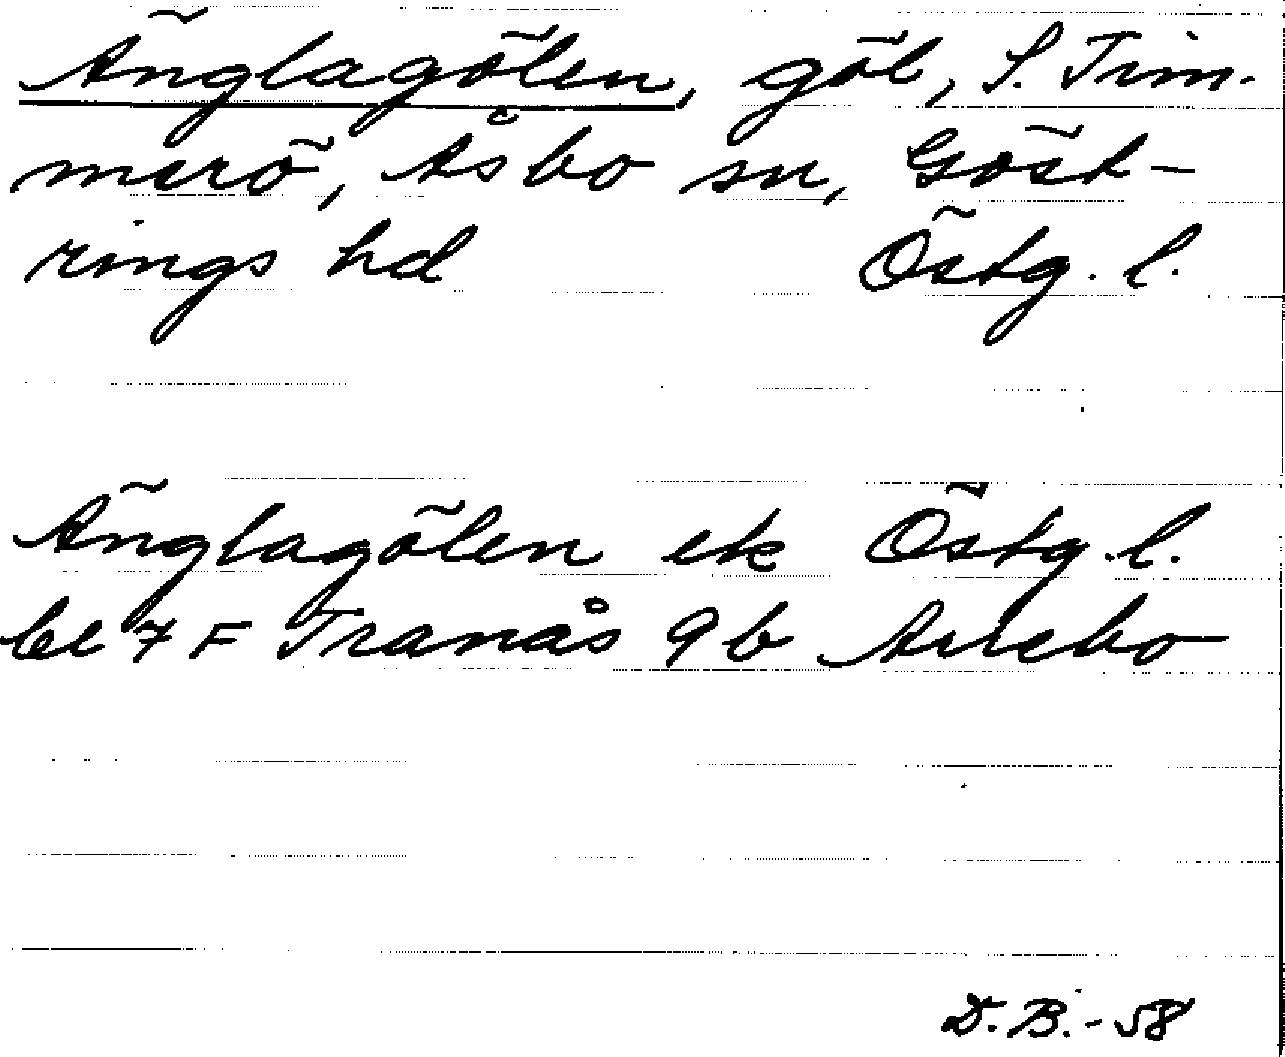 Änglagölen, göl, S. Tim-
merö, Åsbo sn, Göst-
rings hd Östg. l.
Änglagölen ek Östg. l.
bl 7 F Tranås 9 b Arlebo
D. B. - 58